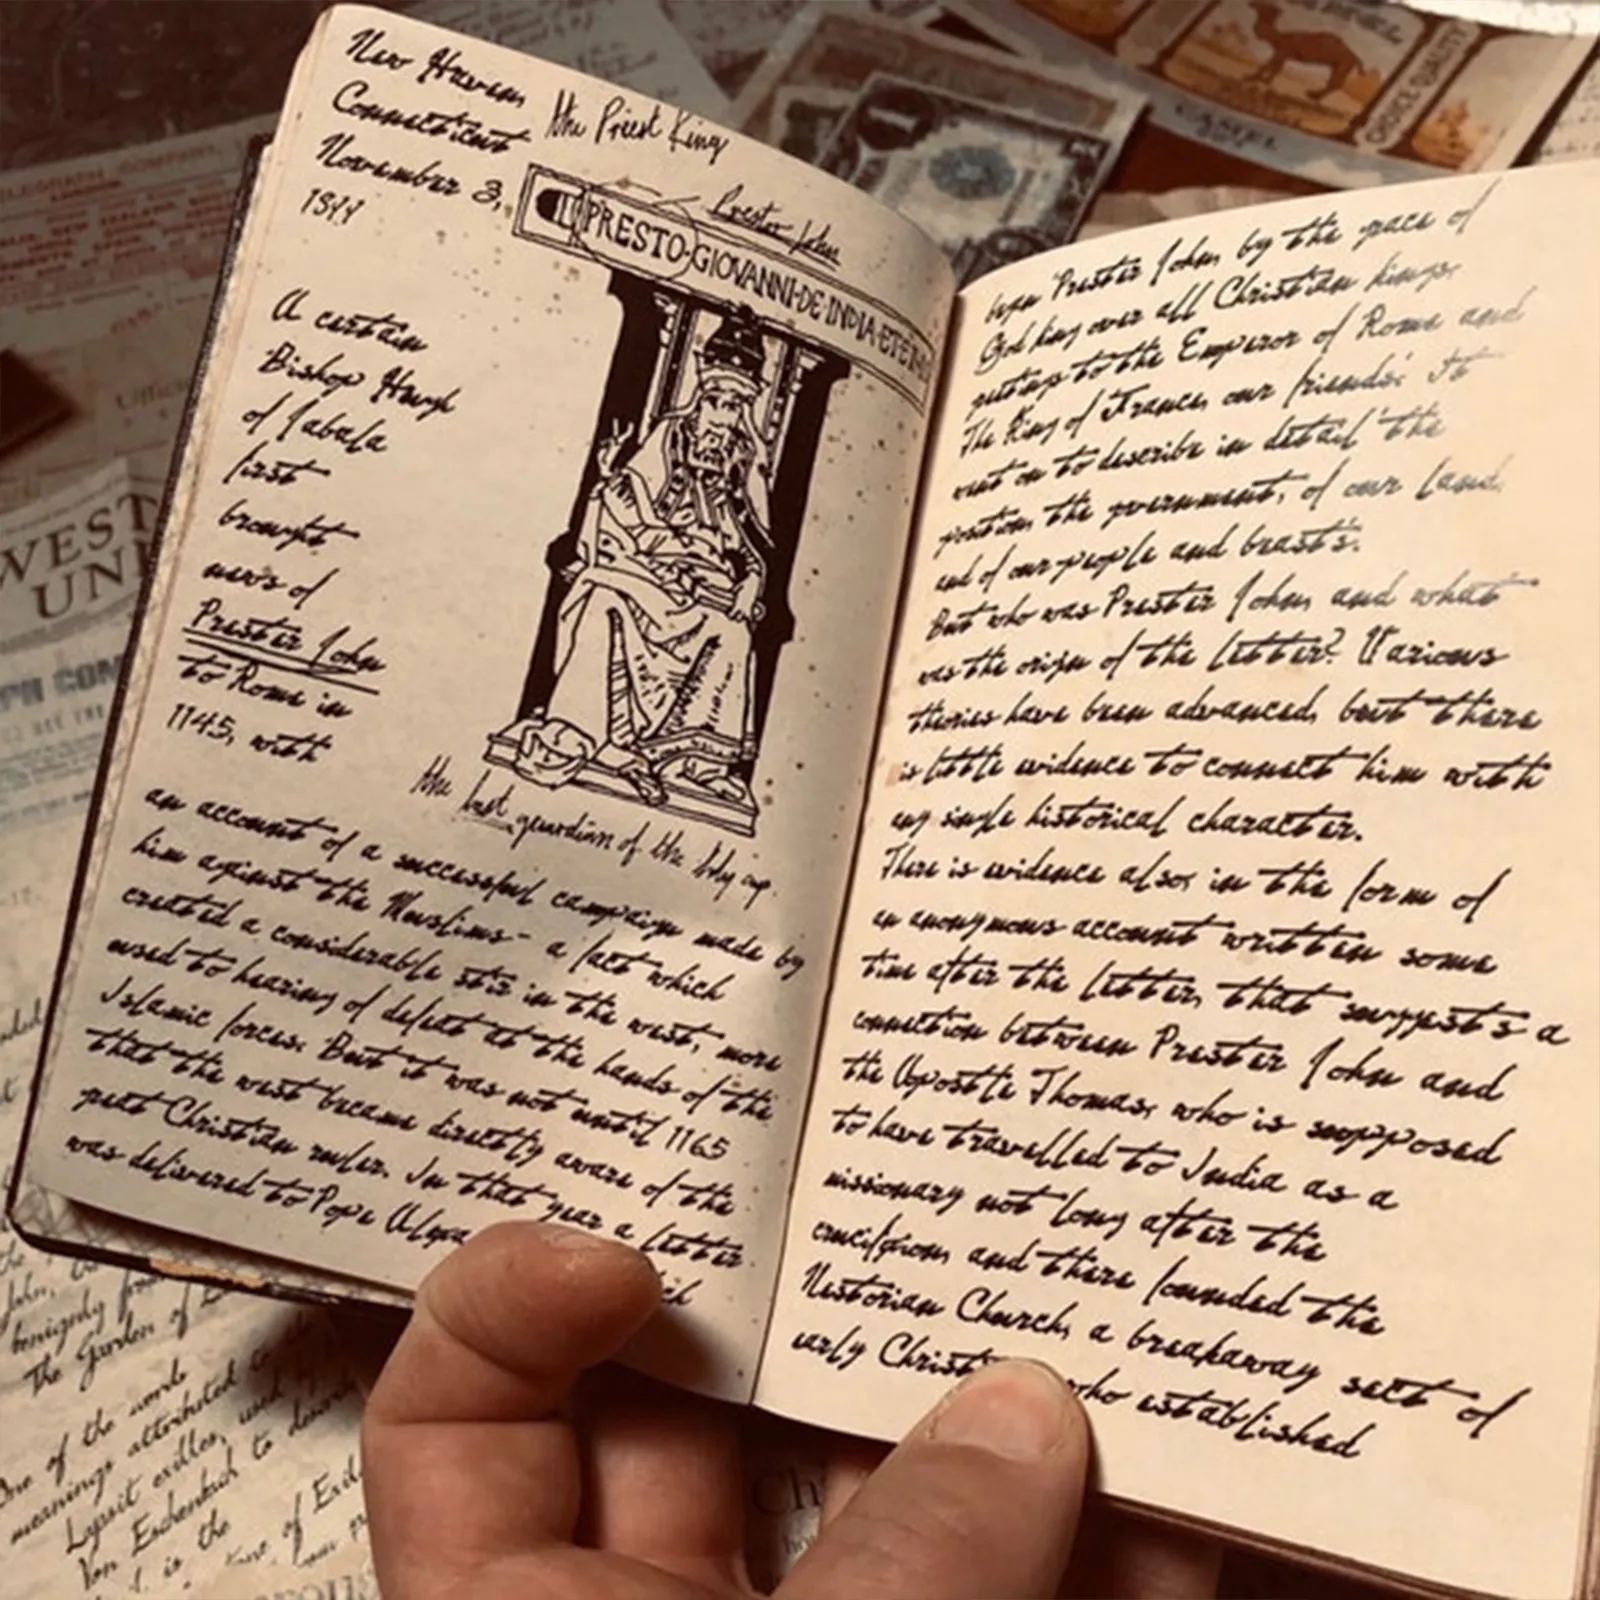 New Haven,
Connecticut
November 3,
the Priest King
Prester John
PRESTO·GIOVANNI·DE·INDIA·ET
A certain
Bishop Hugh
of Jabala
first
brought
news of
Prester John
to Rome in
1145, with
the last guardian of the holy cup.
an account of a successful campaign made by
him against the Muslims - a fact which
created a considerable stir in the west, more
used to hearing of defeat at the hands of the
Islamic forces. But it was not until 1165
that the west became directly aware of the
great Christian ruler. In that year a letter
was delivered to Pope
began 'Prester John, by the grace of
God king over all Christian kings,
greetings to the Emperor of Rome and
The King of France, our friends.' It
went on to describe in detail 'the
position, the government, of our land,
and of our people and beasts'.
But who was Prester John, and what
was the origin of the letter? Various
theories have been advanced, but there
is little evidence to connect him with
any single historical character.
There is evidence also, in the form of
an anonymous account written some
time after the letter, that suggests a
connection between Prester John and
the Apostle Thomas, who is supposed
to have travelled to India as a
missionary not long after the
crucifixion, and there founded the
Nestorian Church, a breakaway sect of
early who established
CHOICE QUALITY
WEST
UNI
benignly
The Garden of
One of the words
meanings attributed to
Lapsit exilles, used
Von Eschenbach to
is the
of Exil